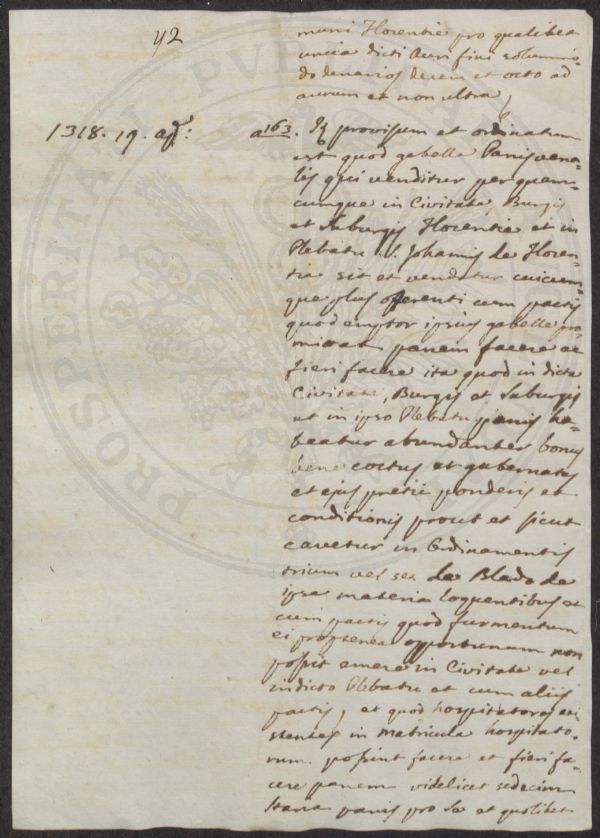 42
muni Florentie pro qualibet
uncia dicti Auri fini solummo-
do denarios decem et octo ad
aurum et non ultra,
1318. 19. ag:
a 163. It provisum et ordinatum
est quod gabella Panis vena-
lis qui venditur per quem-
cumque in Civitate, Burgis
et Suburgis Florentie et in
Plebatu S. Johannis de Floren-
tia sit et vendatur cuicum-
que plus offerenti cum pactis
quod emptor ipsius gabelle pro-
mictat panem facere ac
fieri facere ita quod in dicta
Civitate, Burgis et Suburgis
et in ipso Plebatu panis ha-
beatur abundanter bonus
bene coctus et gubernatus
et ejus pretii ponderis et
conditionis prout et sicut
cavetur in Ordinamentis
trium vel sex de Blado de
ipsa materia loquentibus et
cum pactis quod furmentum
ei propterea opportunum non
possit emere in Civitate vel
in dicto Plebatu et cum aliis
pactis, et quod hospitatores exi-
stentes in matricula hospitato-
rum possint facere et fieri fa-
cere panem videlicet sedecim
staria panis pro se et quolibet
PROSPERITATI PUBLICAE